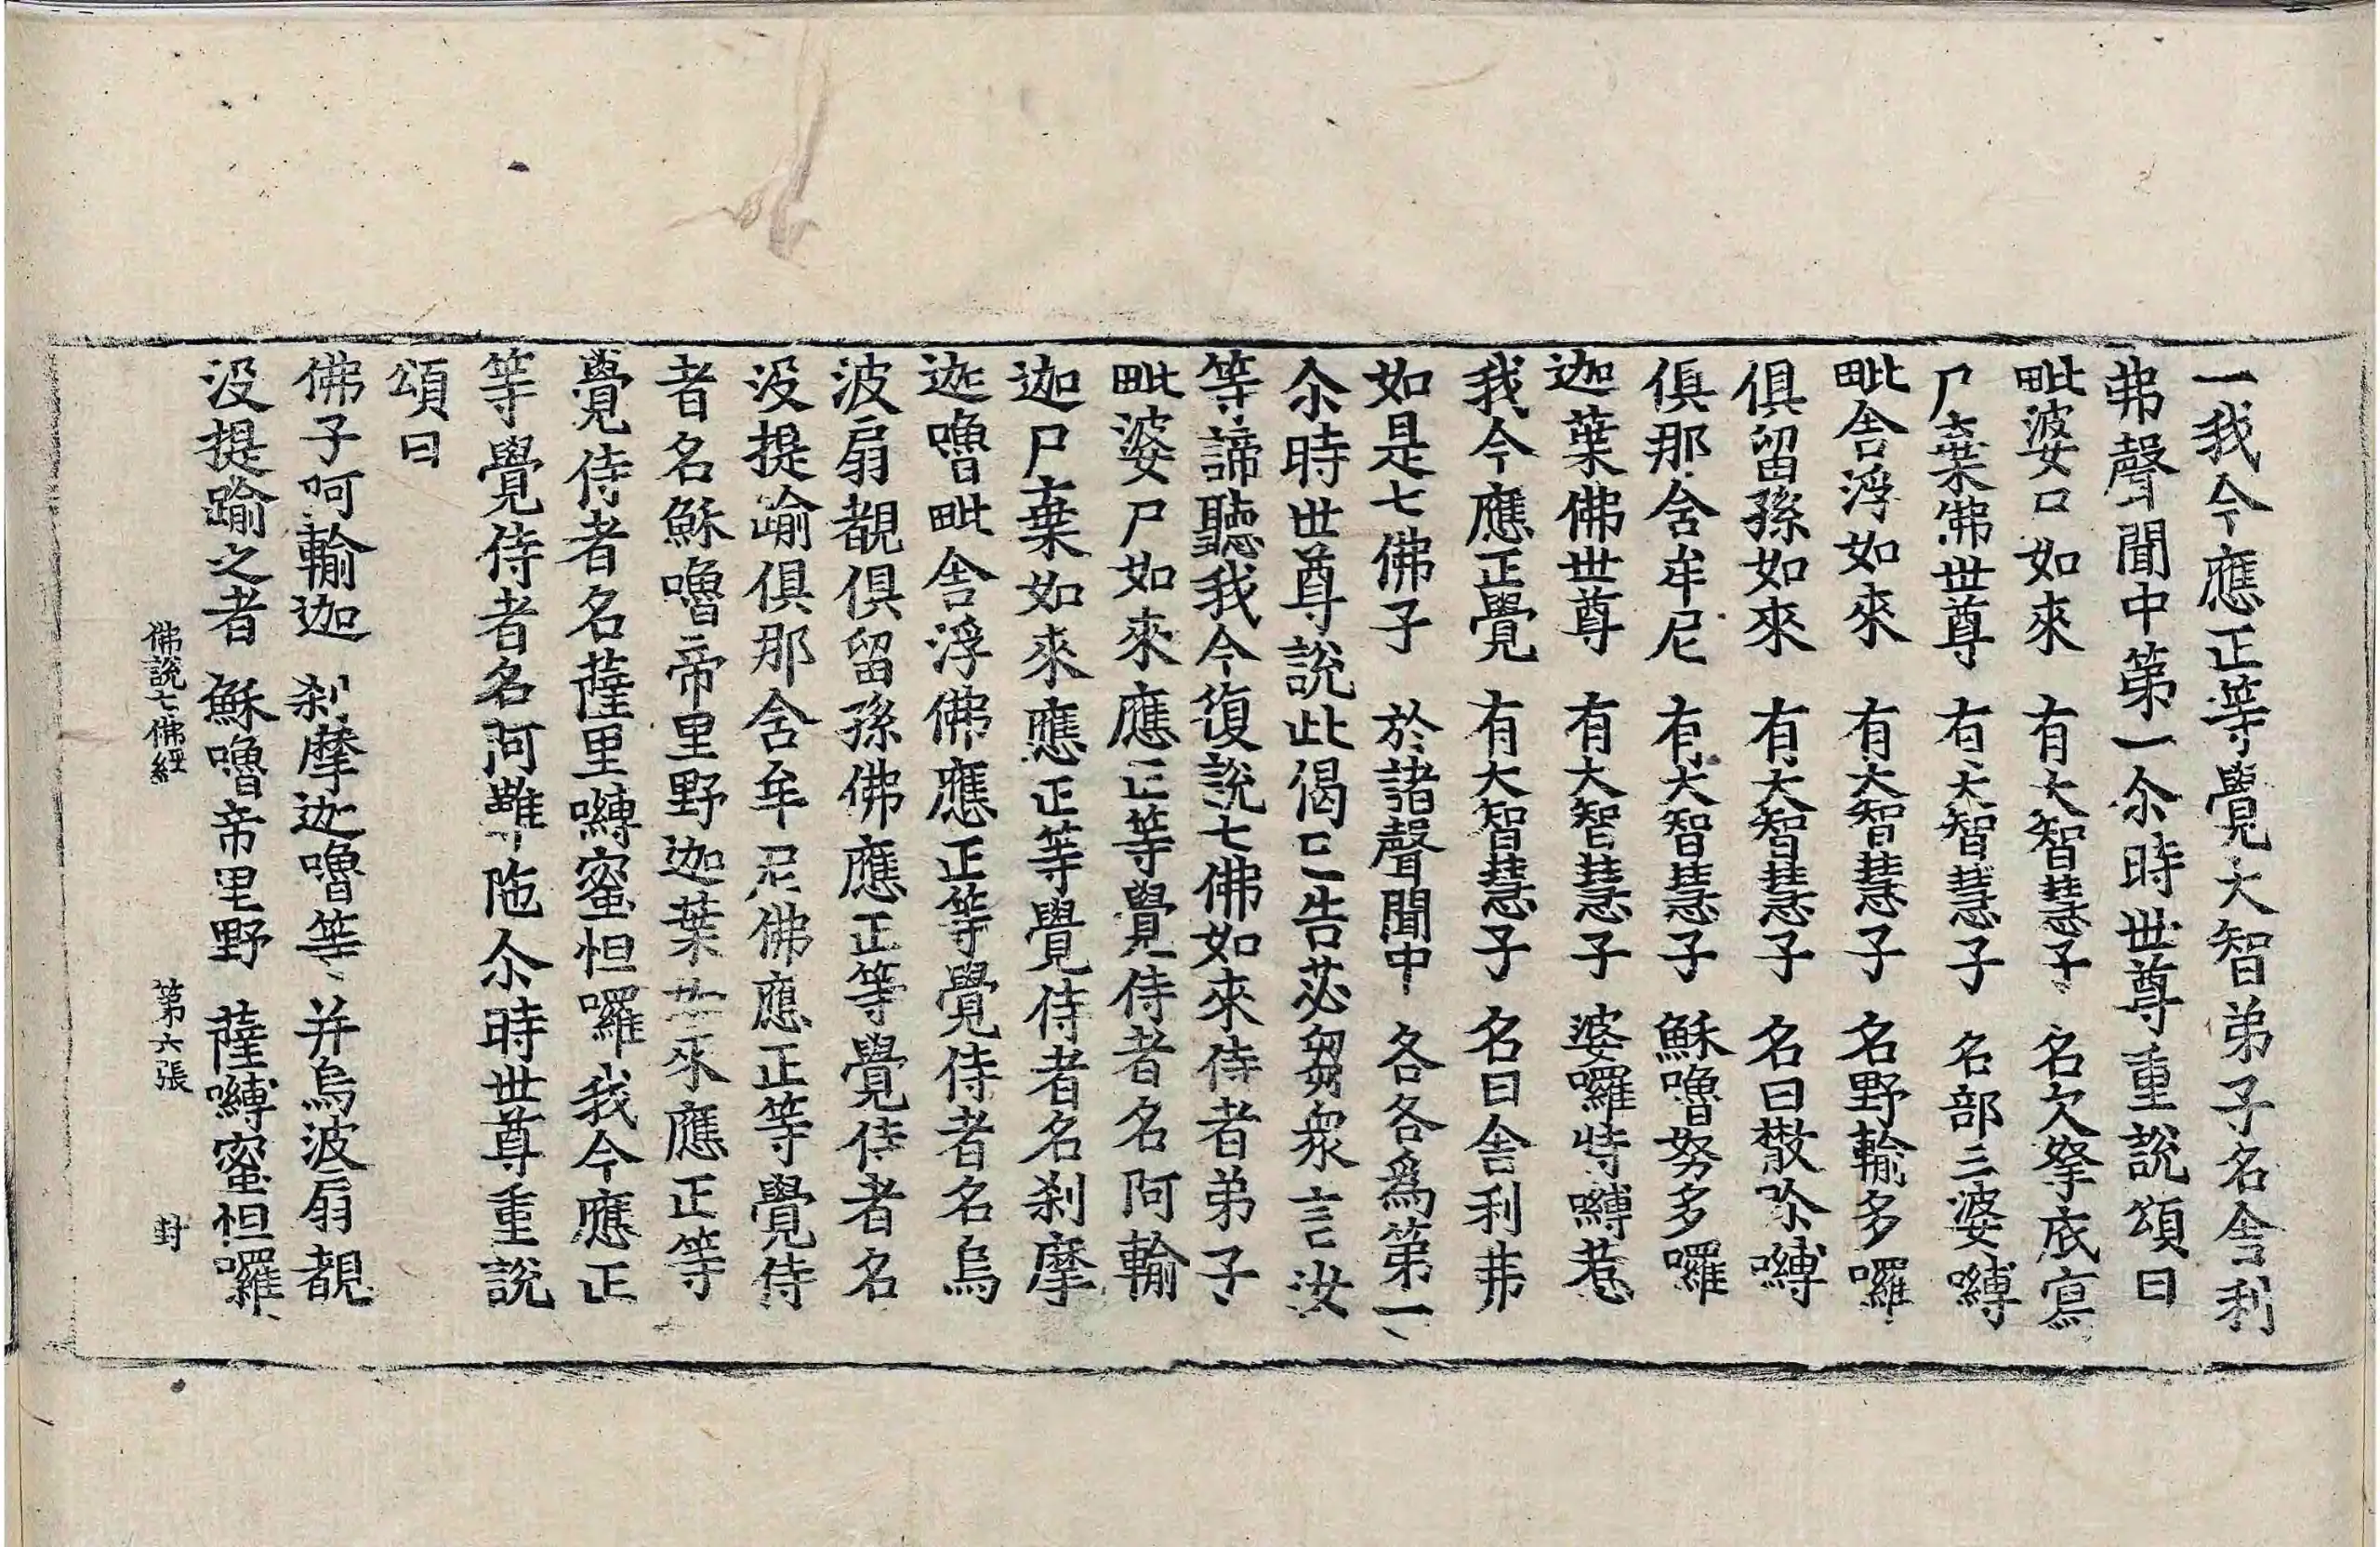 一我今應正等覺大智弟子名舍利
弗聲聞中第一尒時世尊重說頌曰
毗婆尸如來 有大智慧子 名欠拏底寫
尸棄佛世尊 有大智慧子 名部三婆嚩
毗舍浮如來 有大智慧子 名野輸多囉
俱留孫如來 有大智慧子 名曰散㳄嚩
俱那舍牟尼 有大智慧子 穌嚕努多囉
迦葉佛世尊 有大智慧子 婆囉特嚩惹
我今應正覺 有大智慧子 名曰舍利弗
如是七佛子 於諸聲聞中 各各爲第一
尒時世尊說此偈已告苾芻衆言汝
等諦聽我今復說七佛如來侍者弟子
毗婆尸如來應正等覺侍者名阿輸
迦尸棄如來應正等覺侍者名刹摩
迦嚕毗舍浮佛應正等覺侍者名烏
波扇覩俱留孫佛應正等覺侍者名
沒提踰俱那舍牟尼佛應正等覺侍
者名穌嚕帝里野迦葉如來應正等
覺侍者名薩里嚩蜜怛囉我今應正
等覺侍者名阿難陁尒時世尊重說
頌曰
佛子阿輸迦 刹摩迦嚕等 并烏波扇覩
沒提踰之者 穌嚕帝里野 薩嚩蜜怛囉
佛說七佛經 第六張 封